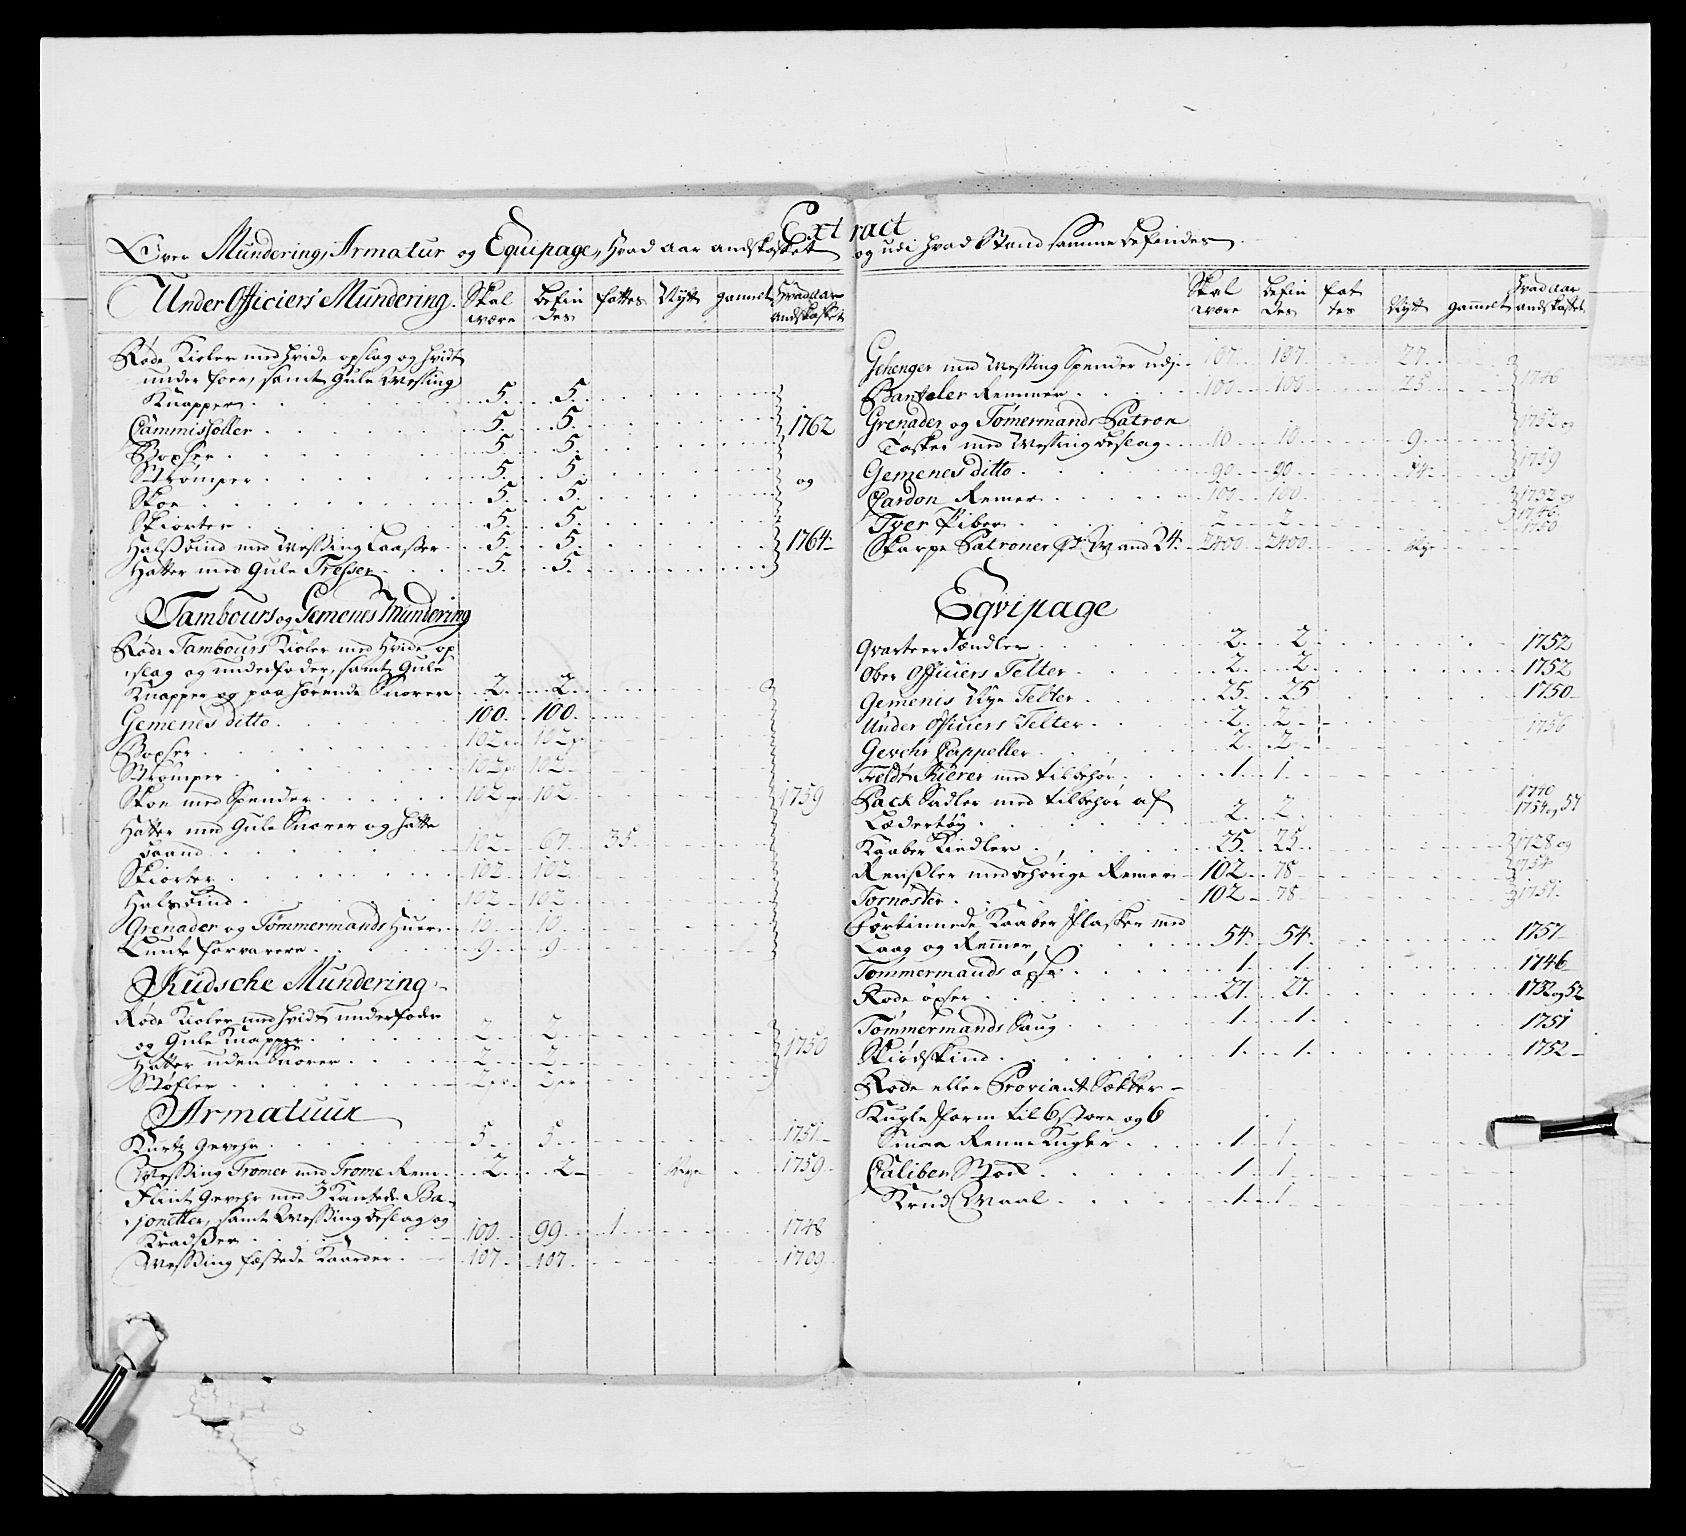 Extract
Over Mundering, Armatur og Equipage, Hvad aar andskaffet og udi hvad Stand samme befindes
Under Officiers Mundering. Skal være Befin des fattes Nytt gammelt Hvad aar andskaffet
Røde Kioler med hvide opslag og hvidt
under foer, samt Gule Messing
Knapper 5. 5.
Cammisoller 5. 5. 1762
Boxser 5. 5.
Strømper 5. 5. og
Skoe 5. 5.
Skiorter 5. 5.
Halsbind med Messing Laaser 5. 5. 1764
Hatter med Gule Tresser 5. 5.
Tambours og Gemenes Mundering
Røde Tambours Kioler med Hvide op
slag og underfoder, samt Gule
Knapper og paahørende Snorer 2. 2.
Gemenes ditto 100. 100.
Boxser 102 pr 102 pr
Strømper 102 pr 102
Skoe med Spender 102 pr 102 1759
Hatter med Gule Snorer og hatte
baand 102 67. 35
Skiorter 102 102
Halsbind 102 102
Grenader og Tømmermands Huer 10 10
Lunte forvarere 9 9
Kudsche Mundering
Røde Kioler med hvidt underfoder
og Gule Knapper 2 2
Hatter uden Snorer 2 2 1750
Støfler 2 pr 2 pr
Armatuur
Kurtz Gevehr 5 5 1751
Messing Tromer med Trome Rem 2. 2 Nye 1759
Flint Gevehr med 3 Kantede Ba-
jonetter, samt Messing beslag og
Kradser 100 99 1 1748
Messing fæstede Kaarder 107 107 1709
Skal være Befin des fat tes Nytt gammelt Hvad aar andskaffet
Gehenger med Messing Spender udj 107 107 27
Banteler Remmer 100 100 25 1746
Grenader og Tømermands Patron
Tasker med Messing beslag 10 10 9 1752 og
Gemenes ditto 90 90 74 1759
Cardon Remer 100 100 1732 og
Tver Piber 2 2 1746 1750
Skarpe Patroner pr Mand 24 2400 2400 Nye
Eqvipage
Qvarteer Fændler 2. 2. 1752
Ober Officiers Telter 2. 2. 1752
Gemenis Nye Telter 25. 25 1750
Under Officiers Telter 2. 2 1756
Gevehr Cappeller 2. 2
Feldt Skierer med tilbehør 1. 1.
Pack Sadler med tilbehør af 1710
Lædertøy 2. 2 1754 og 57
Kaaber Kiedler 25. 25. 1728 og
Rendsler med behørige Remer 102 78 1754
Tornøster 102 78 1757
Fortinnede Kaaber Flasker med
Laag og Remer 54. 54. 1757
Tømmermands öxse 1. 1. 1746
Rode öxser 27. 27. 1732 og 52
Tømmermands Saug 1. 1. 1751
Skiødskind 1. 1. 1752
Rode eller Proviant Sækker
Kugle Form til 6 store og 6
Smaa Renne Kugler 1. 1
Caliber Stock 1 1
Krud Maal 1. 1